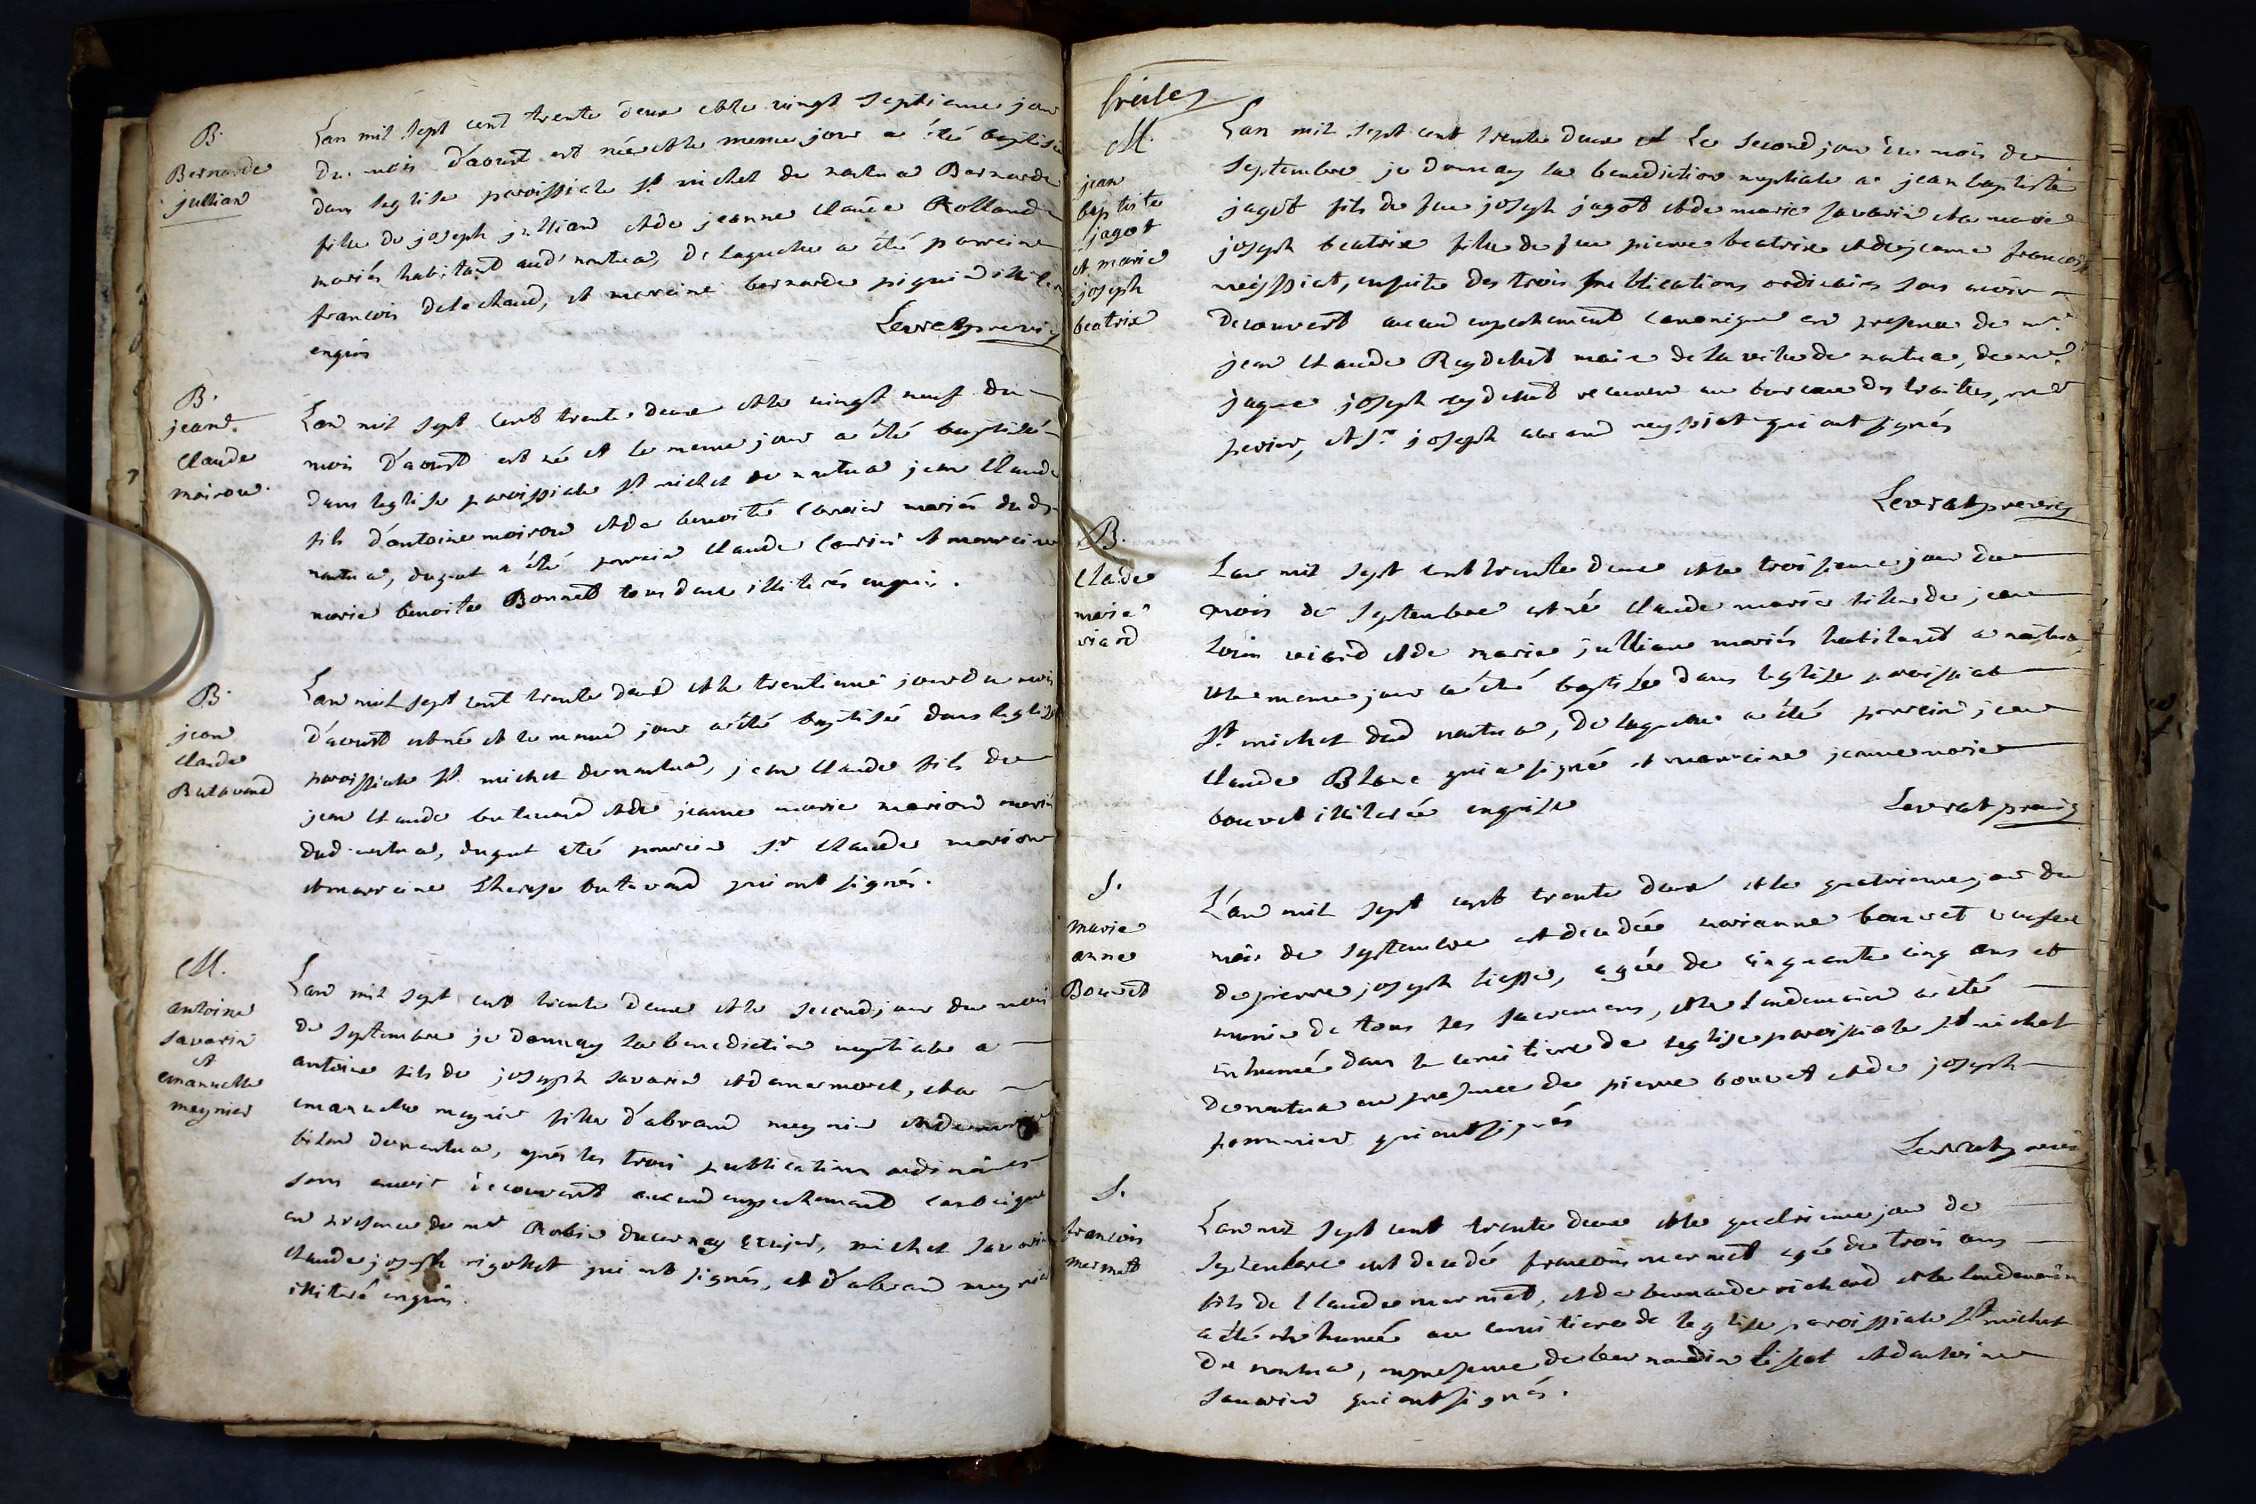 B.
Bernarde
jullian
Lan mil sept cent trente deux et le vingt septieme jour
du mois d'aoust est née et le meme jour a été baptisée
dans leglise paroissiale st michel de nantua Bernarde
fille de joseph jullian et de jeanne claude Rolland
mariés habitant aud' nantua, de laquelle a été parrein
francois delachaud, et mareine bernarde
enquis
Levrat prevere
B.
jean
claude
moiron
Lan mil sept cent trente deux et le vingt neuf du
mois d'aoust est né et le meme jour a été baptisé
dans leglise paroissiale st michel de nantua jean claude
fils d'antoine moiron et de benoite Carrier mariés dud
nantua, duquel a été parrein claude Carrier et marreine
marie benoite Bonnet tous deux illiterés enquis.
B.
jean
claude
Butavand
Lan mil sept cent trente deux et le trentieme jour du mois
d'aoust est né et le meme jour a été baptisé dans leglise
paroissiale st michel de nantua, jean claude fils de
jean claude butavand et de jeanne marie marion mariés
dud nantua, duquel a été parrein sr claude marion
et marreine Therese butavand qui ont signés.
M.
antoine
savarin
et
emanuelle
meynier
Lan mil sept cent trente deux et le second jour du mois
de septembre je donnay la benediction nuptiale a
antoine fils de joseph savarin et d'anne morel, et a
emanuelle meynier fille d'abram meynier et de
de nantua, aprés les trois publications ordinaires
sans avoir découvert aucun empechement canonique
en presence de mr Robin ducernay Ecuyer, michel savarin
claude joseph rigollet qui ont signés, et d'abram meynier
illiteré enquis.
treize
M.
jean
baptiste
jagot
et marie
joseph
beatrix
Lan mil sept cent trente deux et le second jour du mois de
septembre je donnay la benediction nuptiale a jean baptiste
jagot fils de feu joseph jagot et de marie savarin et a marie
joseph beatrix fille de feu pierre beatrix et de jeanne francoise
neyssiat, ensuite des trois publications ordinaires sans avoir
decouvert aucun empechement canonique en presence de mr
jean claude Reydellet maire de la ville de nantua, de mr
jaque joseph reydellet receveur au bureau des traittes, mr
perier, et sr joseph abram neyssiat qui ont signés
Levrat prevere
B.
claude
marie
viard
Lan mil sept cent trente deux et le troisieme jour du
mois de septembre est née claude marie fille de jean
loüis viard et de marie julliane mariés habitant a nantua
et le meme jour a été baptisée dans leglise paroissiale
st michel dud nantua, de laquelle a été parrein jean
claude Blanc qui a signé et marreine jeanne marie
bouvet illiterée enquise
Levrat prevere
S.
marie
anne
Bouvet
L'an mil sept cent trente deux et le quatrieme jour du
mois de septembre est decedée marianne bouvet veufve
de pierre joseph, agée de cinquante cinq ans et
munie de tous les sacremens, et le landemain a été
inhumée dans le cemitiere de leglise paroissiale st michel
de nantua en presence de pierre bouvet et de joseph
qui ont signés
Levrat prevere
S.
francois
mermet
Lan mil sept cent trente deux et le quatrieme jour de
septembre est decedé francois mermet agé de trois ans
fils de claude mermet, et de bernarde richard et le landemain
a été inhumé au cemitiere de leglise paroissiale st michel
de nantua, en presence de bernardin tissot et d'antoine
savarin qui ont signés.